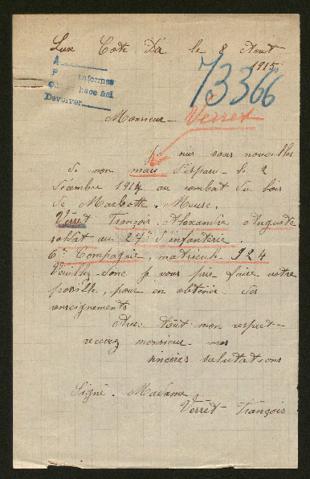 Lux Cote D'or le 8 Aout
1915
73366
informes
Devolver
Monsieur Verret
Je suis sans nouvelles
de mon mari disparu le 2
Décembre 1914 au combat du bois
de Marbotte, Meuse.
Verret François Alexandre Auguste
soldat au 27e d'infanterie.
6e Compagnie, matricule 924
Veuillez donc je vous prie faire votre
possible, pour en obtenir des
renseignements
Avec tout mon respect
recevez monsieur mes
sincères salutations
Signé. Madame
Verret François